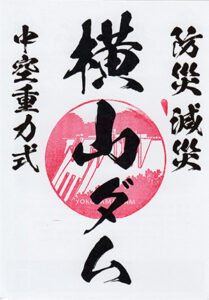 防災減災
横山ダム
中空重力式
YOKOYAMA DAM